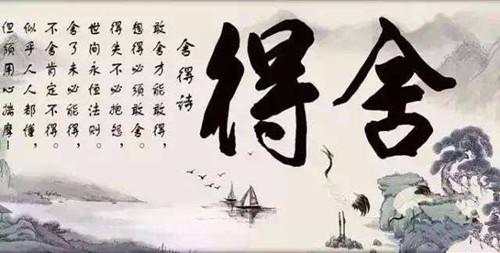 舍得
舍得诗
敢舍才能敢得，
想得必须敢舍。
得失不必抱怨，
世间永恒法则。
舍了未必能得，
不舍肯定不得。
似乎人人都懂，
但须用心揣摩！